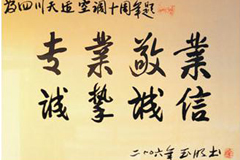 为四川天造空调十周年题
专業敬業
诚挚诚信
二〇〇六年
书